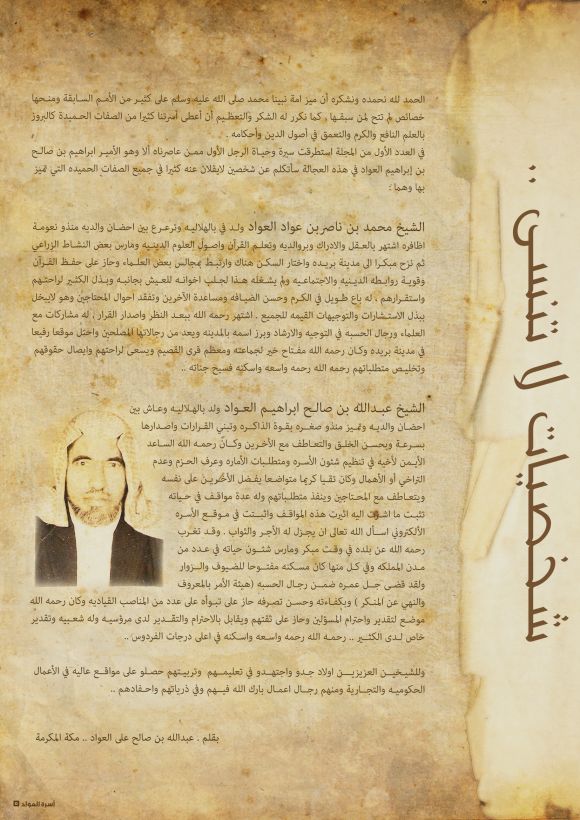 شخصيات لا تنسى ..
الحمد لله نحمده ونشكره أن ميز امة نبينا محمد صلى الله عليه وسلم على كثير من الأمم السابقة ومنحها
خصائص لم تتح لمن سبقها , كما نكرر له الشكر والتعظيم أن أعطى أسرتنا كثيرا من الصفات الحميدة كالبروز
بالعلم النافع والكرم والتعمق في أصول الدين وأحكامه .
في العدد الأول من المجلة استطرقت سيرة وحياة الرجل الأول ممن عاصرناه ألا وهو الأمير ابراهيم بن صالح
بن إبراهيم العواد في هذه العجالة سأتكلم عن شخصين لايقلان عنه كثيرا في جميع الصفات الحميده التي تميز
بها وهما :
الشيخ محمد بن ناصر بن عواد العواد ولد في بالهلاليه وترعرع بين احضان والديه منذو نعومة
اظافره اشتهر بالعقل والادراك وبروالديه وتعلم القرآن واصول العلوم الدينيه ومارس بعض النشاط الزراعي
ثم نزح مبكرا الى مدينة بريده واختار السكن هناك وارتبط بمجالس بعض العلماء وحاز على حفظ القرآن
وقوية روابطه الدينيه والاجتماعيه ولم يشغله هذا لجلب اخوانه للعيش بجانبه وبذل الكثير لراحتهم
واستقرارهم , له باع طويل في الكرم وحسن الضيافه ومساعدة الآخرين وتفقد احوال المحتاجين وهو لايبخل
ببذل الاستشارات والتوجيهات القيمه للجميع . اشتهر رحمه الله ببعد النظر واصدار القرار , له مشاركات مع
العلماء ورجال الحسبه في التوجيه والارشاد وبرز اسمه بالمدينه ويعد من رجالاتها المصلحين واختل موقعا رفيعا
في مدينة بريده وكان رحمه الله مفتاح خير لجماعته ومعظم قرى القصيم ويسعى لراحتهم وايصال حقوقهم
وتخليص متطلباتهم رحمه الله رحمه واسعه واسكنه فسيح جناته ..
الشيخ عبدالله بن صالح ابراهيم العواد ولد بالهلاليه وعاش بين
احضان والديه وتميز منذو صغره بقوة الذاكره وتبني القرارات واصدارها
بسرعة وبحسن الخلق والتعاطف مع الأخرين وكان رحمه الله الساعد
الأيمن لأخيه في تنظيم شئون الأسره ومتطلبات الأماره وعرف الحزم وعدم
التراخي أو الأهمال وكان تقيا كريما متواضعا يفضل الأخرين على نفسه
ويتعاطف مع المحتاجين وينفذ متطلباتهم وله عدة مواقف في حياته
تثبت ما اشرت اليه اثيرت هذه المواقف واثبتت في موقع الأسره
الألكتروني اسأل الله تعالى ان يجزل له الأجر والثواب . وقد تغرب
رحمه الله عن بلده في وقت مبكر ومارس شئون حياته في عدد من
مدن المملكه وفي كل منها كان مسكنه مفتوحا للضيوف والزوار
ولقد قضى جل عمره ضمن رجال الحسبه (هيئة الأمر بالمعروف
والنهي عن المنكر ) وبكفاءته وحسن تصرفه حاز على تبوأه على عدد من المناصب القياديه وكان رحمه الله
موضع لتقدير واحترام المسؤلين وحاز على ثقتهم ويقابل بالاحترام والتقدير لدى مرؤسيه وله شعبيه وتقدير
خاص لدى الكثير .. رحمه الله رحمه واسعه واسكنه في اعلى درجات الفردوس ..
وللشيخين العزيزين اولاد جدو واجتهدو في تعليمهم وتربيتهم حصلو على مواقع عاليه في الأعمال
الحكوميه والتجارية ومنهم رجال اعمال بارك الله فيهم وفي ذرياتهم واحفادهم ..
بقلم . عبدالله بن صالح على العواد .. مكة المكرمة
أسرة العواد